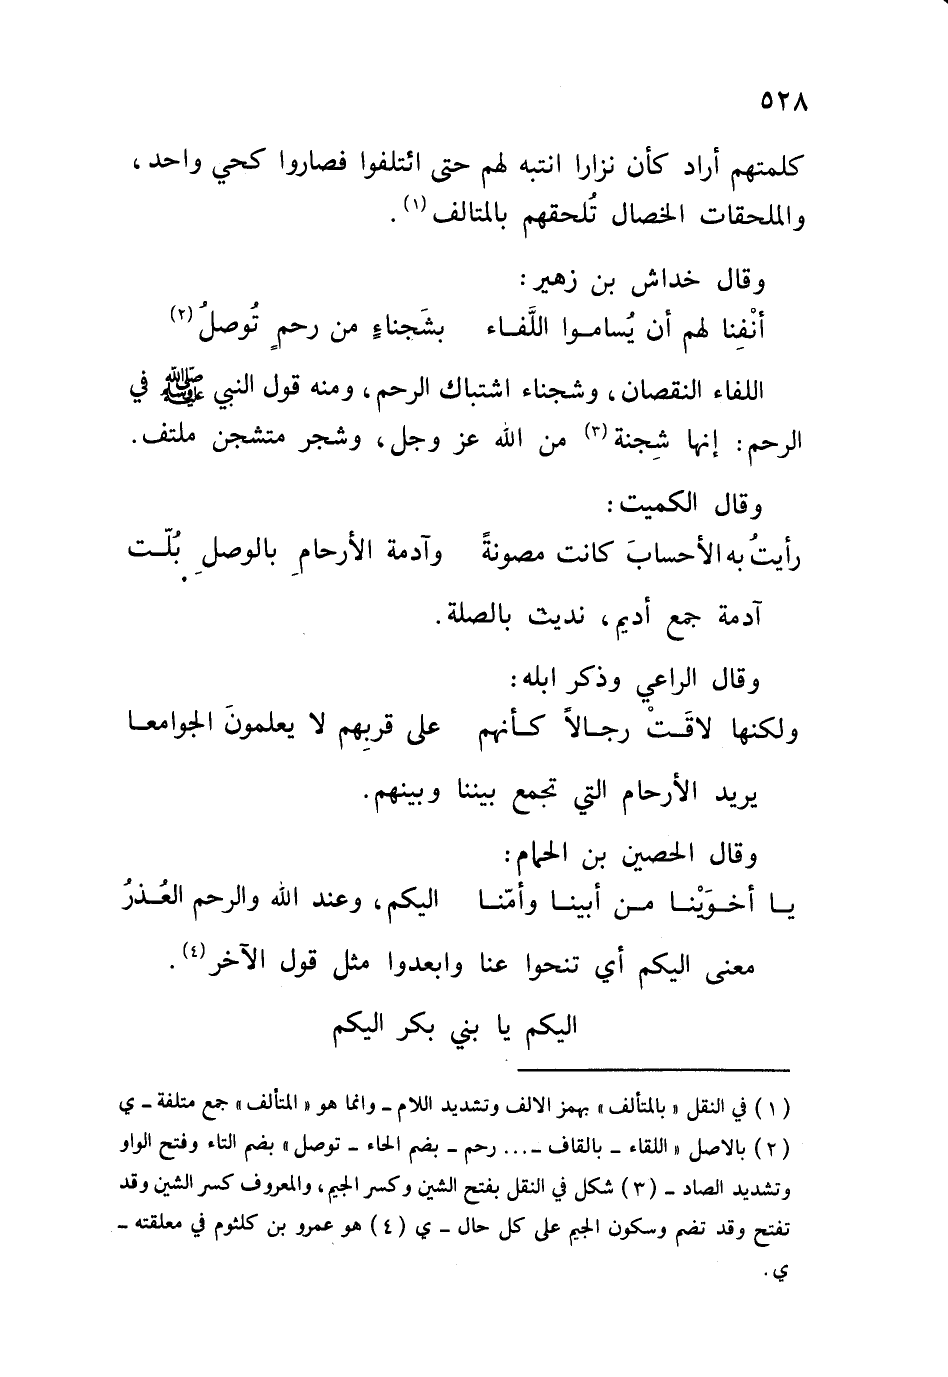 ٥٢٨
كلمتهم أراد كأن نزارا انتبه لهم حتى ائتلفوا فصاروا كحي واحد،
والملحقات الخصال تُلحقهم بالمتالف (١).
وقال خداش بن زهير:
أنْفِنا لهم أن يُسامـوا اللَّفـاء بشَجناءٍ من رحمٍ تُوصلُ (٢)
اللفاء النقصان، وشجناء اشتباك الرحم، ومنه قول النبي ﷺ في
الرحم: إنها شِجنة (٣) من الله عز وجل، وشجر متشجن ملتف.
وقال الكميت:
رأيتُ به الأحسابَ كانت مصونةً وآدمة الأرحامِ بالوصلِ بُلّـت
آدمة جمع أديم، نديت بالصلة.
وقال الراعي وذكر ابله:
ولكنها لاقَـتْ رجـالاً كـأنهم على قربِهم لا يعلمونَ الجوامعـا
يريد الأرحام التي تجمع بيننا وبينهم.
وقال الحصين بن الحمام:
يـا أخـوَيْنـا مـن أبينـا وأمّنـا اليكم، وعند الله والرحم العُـذرُ
معنى اليكم أي تنحوا عنا وابعدوا مثل قول الآخر (٤).
اليكم يا بني بكر اليكم
(١) في النقل «بالمتألف» بهمز الالف وتشديد اللام ـ وانما هو «المتألف» جمع متلفة ـ ي
(٢) بالاصل «اللقاء ـ بالقاف ـ... رحم ـ بضم الحاء ـ توصل» بضم التاء وفتح الواو
وتشديد الصاد ـ (٣) شكل في النقل بفتح الشين وكسر الجيم، والمعروف كسر الشين وقد
تفتح وقد تضم وسكون الجيم على كل حال ـ ي (٤) هو عمرو بن كلثوم في معلقته ـ
ي.